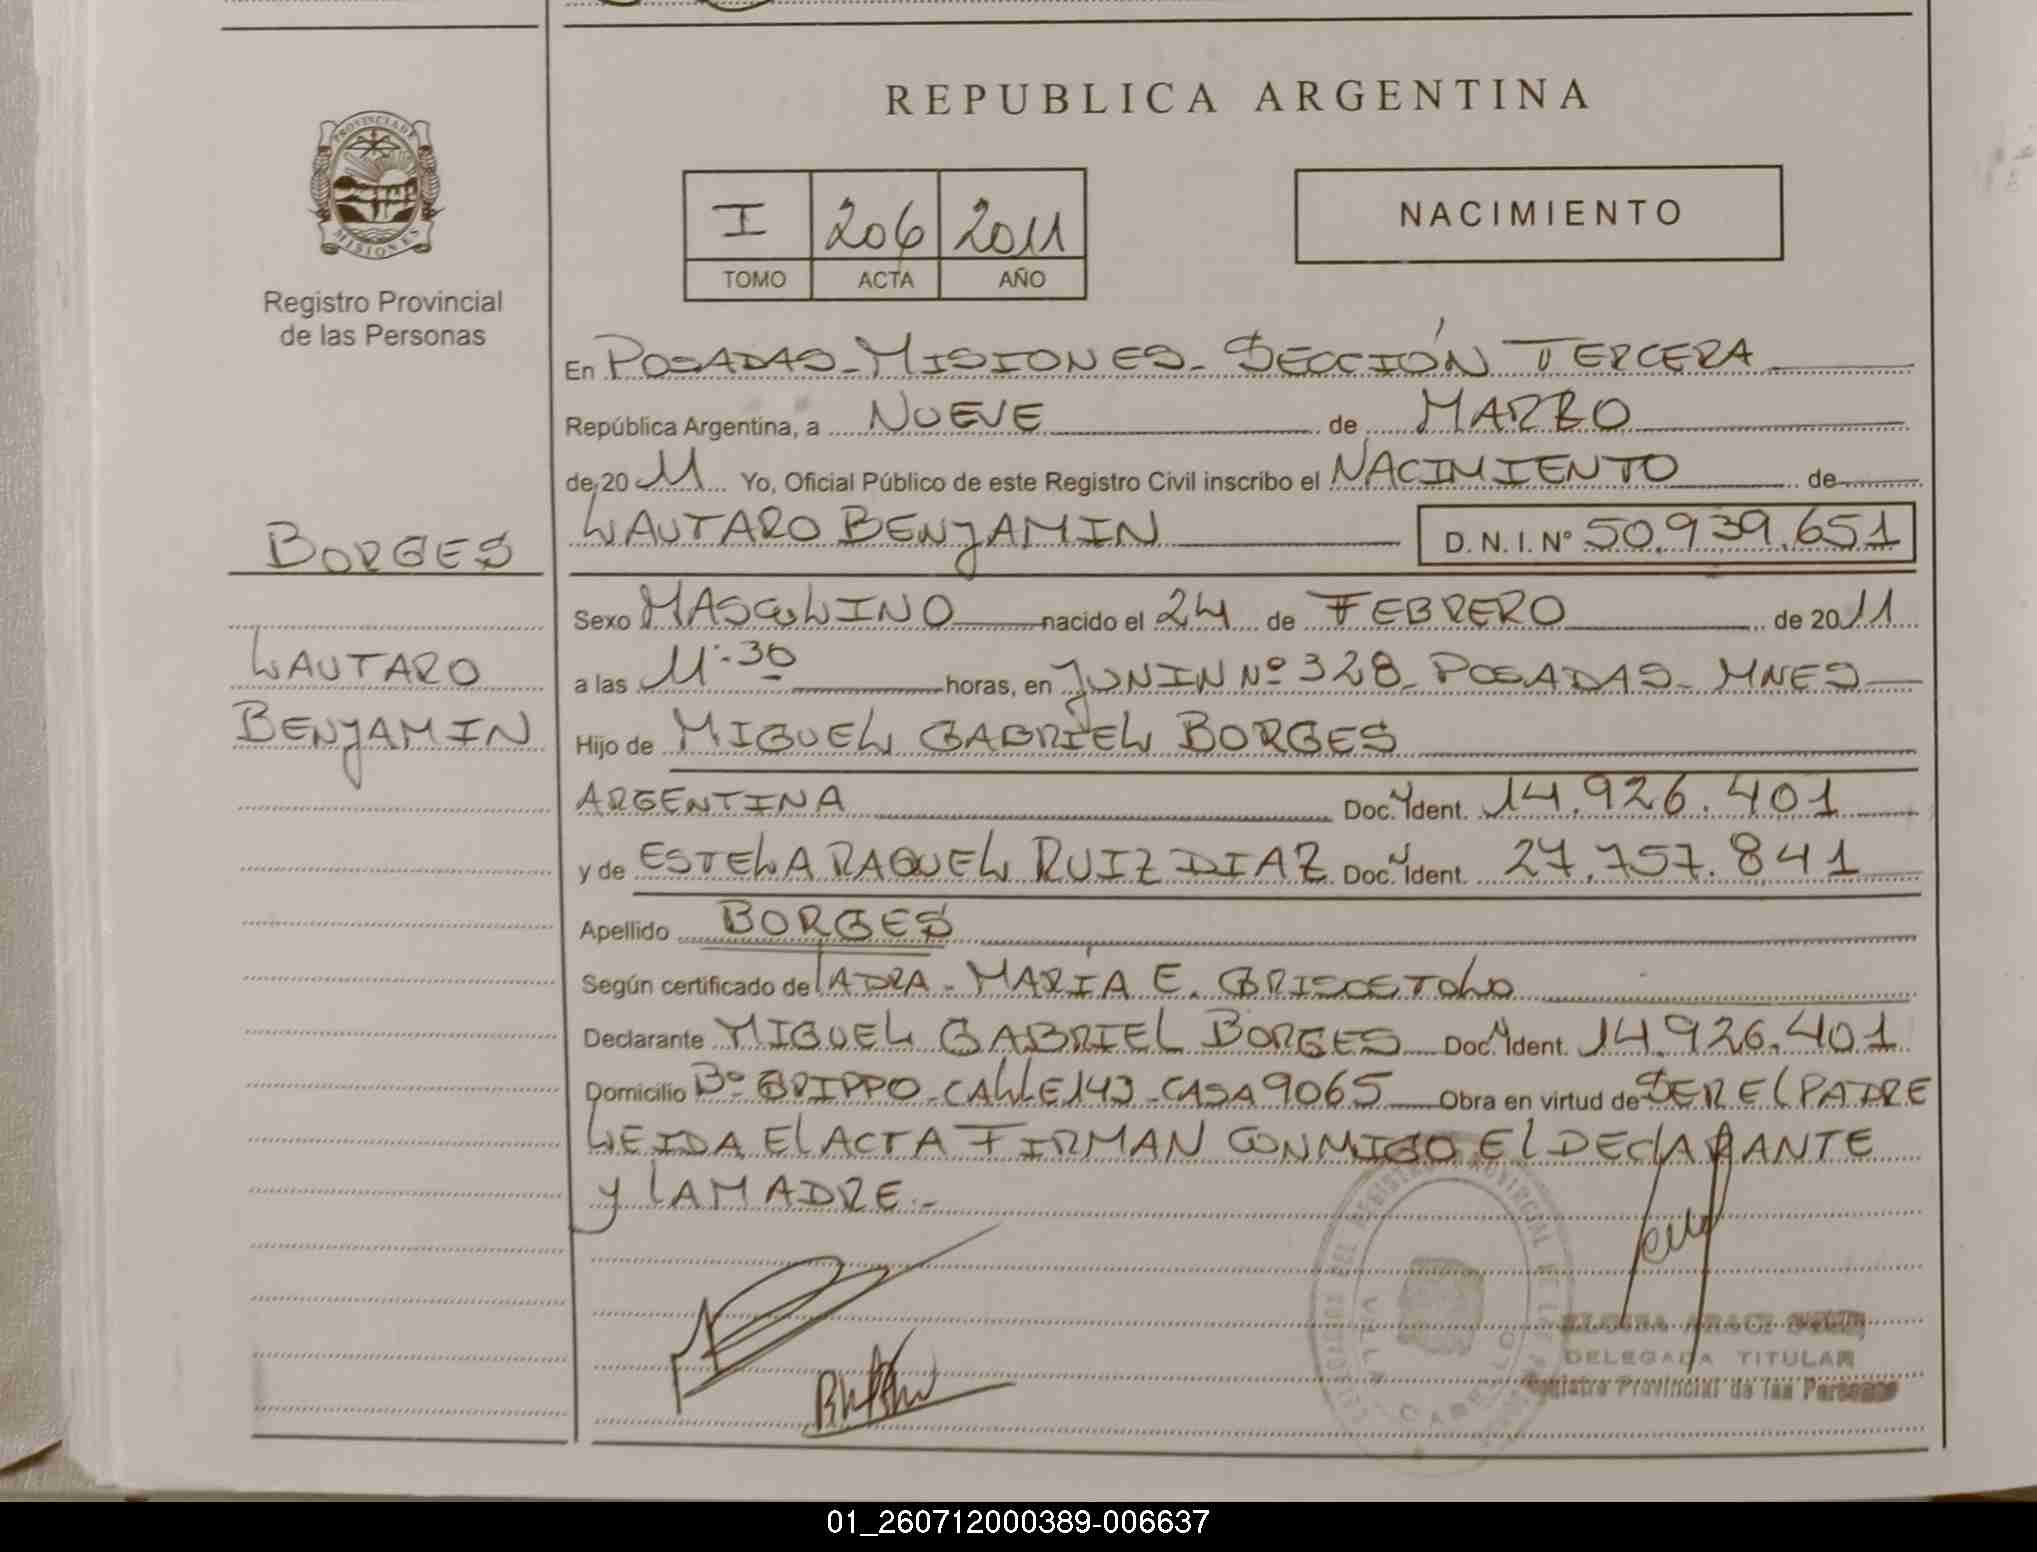 REPUBLICA ARGENTINA
PROVINCIA DE
MISIONES
Registro Provincial
de las Personas
I 206 2011
TOMO ACTA AÑO
NACIMIENTO
En POSADAS-MISIONES-SECCIÓN TERCERA
República Argentina, a NUEVE de MARZO
de 20 11 Yo, Oficial Público de este Registro Civil inscribo el NACIMIENTO de
LAUTARO BENJAMIN D. N. I. Nº 50.939.651
BORGES
LAUTARO
BENJAMIN
Sexo MASCULINO nacido el 24 de FEBRERO de 2011
a las 11:30 horas, en JUNIN Nº 328-POSADAS-MNES
Hijo de MIGUEL GABRIEL BORGES
ARGENTINA Doc. Ident. 14.926.401
y de ESTELA RAQUEL RUIZ DIAZ Doc. Ident. 27.757.841
Apellido BORGES
Según certificado de LA DRA-MARÍA E.
Declarante MIGUEL GABRIEL BORGES Doc. Ident. 14.926.401
Domicilio Bº GRIPPO-CALLE 143-CASA 9065 Obra en virtud de SER EL PADRE
LEIDA EL ACTA FIRMAN CONMIGO EL DECLARANTE
Y LA MADRE.-
DELEGADA TITULAR
Registro Provincial de las Personas
01_260712000389-006637